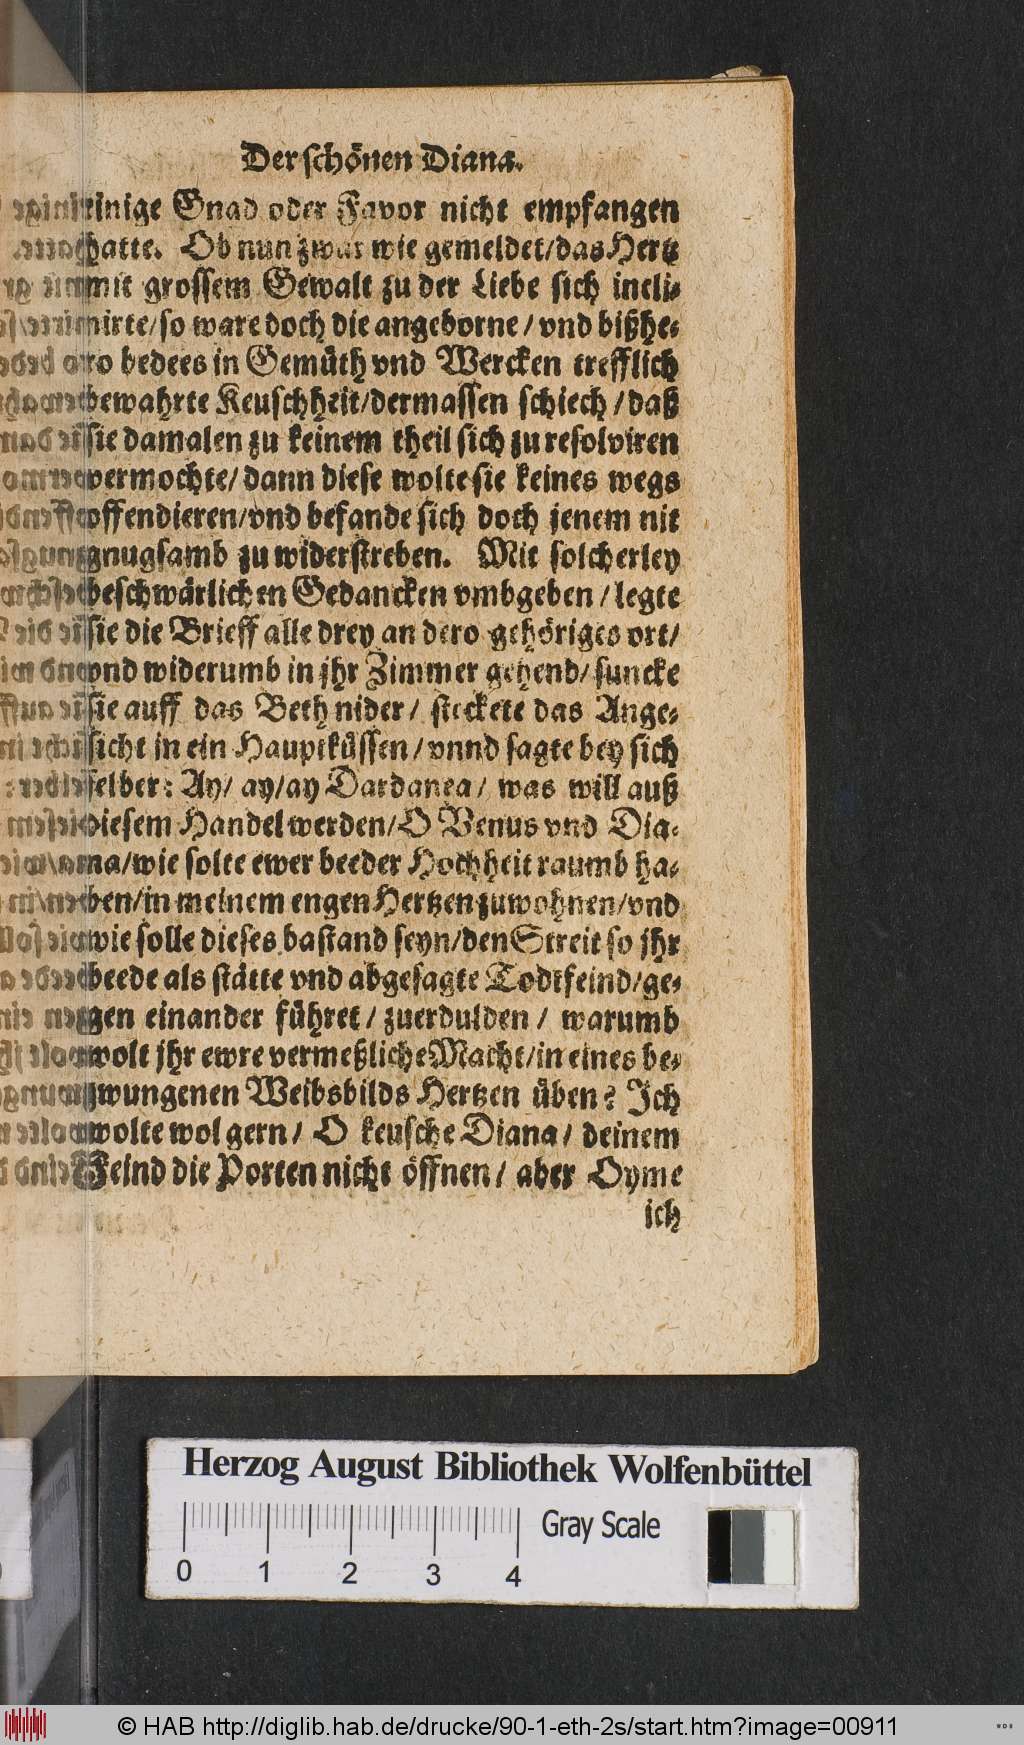 Der schönen Diana.
einige Gnad oder Favor nicht empfangen
hatte. Ob nun zwar wie gemeldet/das Hertz
mit grossem Gewalt zu der Liebe sich incli-
nirte/so ware doch die angeborne/vnd bißhe-
ro bedees in Gemüth vnd Wercken trefflich
bewahrte Keuschheit/dermassen schiech/daß
sie damalen zu keinem theil sich zu resolviren
vermochte/dann diese wolte sie keines wegs
offendieren/vnd befande sich doch jenem nit
gnugsamb zu widerstreben. Mit solcherley
beschwärlichen Gedancken vmbgeben/legte
sie die Brieff alle drey an dero gehöriges ort/
vnd widerumb in jhr Zimmer gehend/suncke
sie auff das Beth nider/ steckete das Ange-
sicht in ein Hauptküssen/vnnd sagte bey sich
selber: Ay/ ay/ay Dardanea/ was will auß
diesem Handel werden/O Venus vnd Dia-
na/wie solte ewer beeder Hochheit raumb ha-
ben/in meinem engen Hertzen zuwohnen/vnd
wie solle dieses bastand seyn/den Streit so jhr
beede als stätte vnd abgesagte Todtfeind/ge-
gen einander führet/ zuerdulden/ warumb
wolt jhr ewre vermeßliche Macht/in eines be-
zwungenen Weibsbilds Hertzen üben? Ich
wolte wol gern/ O keusche Diana/ deinem
Feind die Porten nicht öffnen/ aber Oyme
ich
Herzog August Bibliothek Wolfenbüttel
0 1 2 3 4 Gray Scale
© HAB http://diglib.hab.de/drucke/90-1-eth-2s/start.htm?image=00911